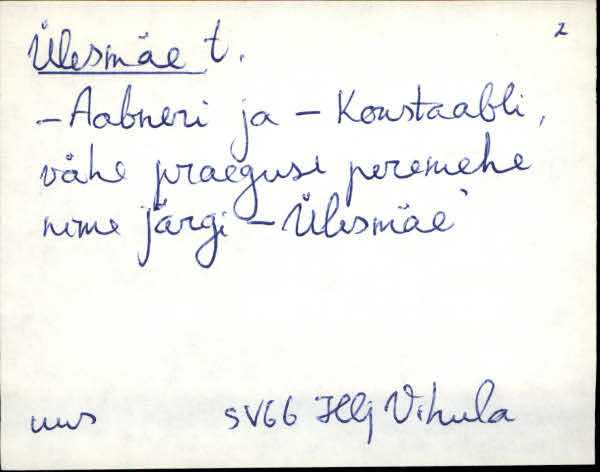 2
Ülesmäe t.
– Aabneri ja – Konstaabli,
vähe praeguse peremehe
nime järgi – Ülesmäe`
uus SV66 Hlj Vihula